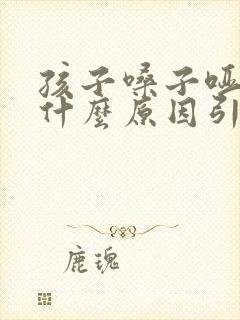 孩子嗓子哑
什麼原因引
鹿瑰